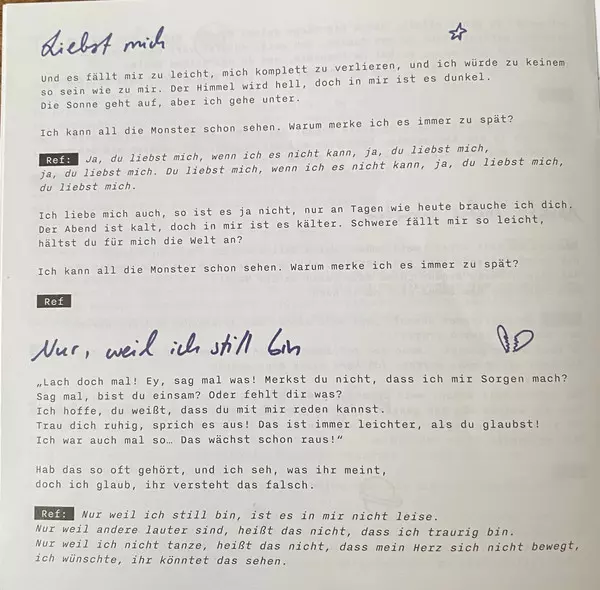 Liebst mich
Und es fällt mir zu leicht, mich komplett zu verlieren, und ich würde zu keinem
so sein wie zu mir. Der Himmel wird hell, doch in mir ist es dunkel.
Die Sonne geht auf, aber ich gehe unter.
Ich kann all die Monster schon sehen. Warum merke ich es immer zu spät?
Ref: Ja, du liebst mich, wenn ich es nicht kann, ja, du liebst mich,
ja, du liebst mich. Du liebst mich, wenn ich es nicht kann, ja, du liebst mich,
du liebst mich.
Ich liebe mich auch, so ist es ja nicht, nur an Tagen wie heute brauche ich dich.
Der Abend ist kalt, doch in mir ist es kälter. Schwere fällt mir so leicht,
hältst du für mich die Welt an?
Ich kann all die Monster schon sehen. Warum merke ich es immer zu spät?
Ref
Nur, weil ich still bin
„Lach doch mal! Ey, sag mal was! Merkst du nicht, dass ich mir Sorgen mach?
Sag mal, bist du einsam? Oder fehlt dir was?
Ich hoffe, du weißt, dass du mit mir reden kannst.
Trau dich ruhig, sprich es aus! Das ist immer leichter, als du glaubst!
Ich war auch mal so… Das wächst schon raus!“
Hab das so oft gehört, und ich seh, was ihr meint,
doch ich glaub, ihr versteht das falsch.
Ref: Nur weil ich still bin, ist es in mir nicht leise.
Nur weil andere lauter sind, heißt das nicht, dass ich traurig bin.
Nur weil ich nicht tanze, heißt das nicht, dass mein Herz sich nicht bewegt,
ich wünschte, ihr könntet das sehen.